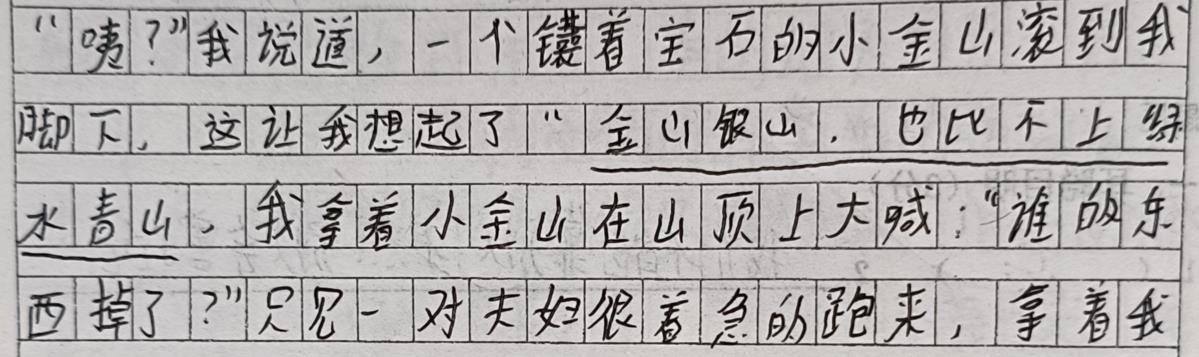 “咦？”我说道，一个镶着宝石的小金山滚到我
脚下，这让我想起了“金山银山，也比不上绿
水青山，我拿着小金山在山顶上大喊：“谁的东
西掉了？”只见一对夫妇很着急的跑来，拿着我